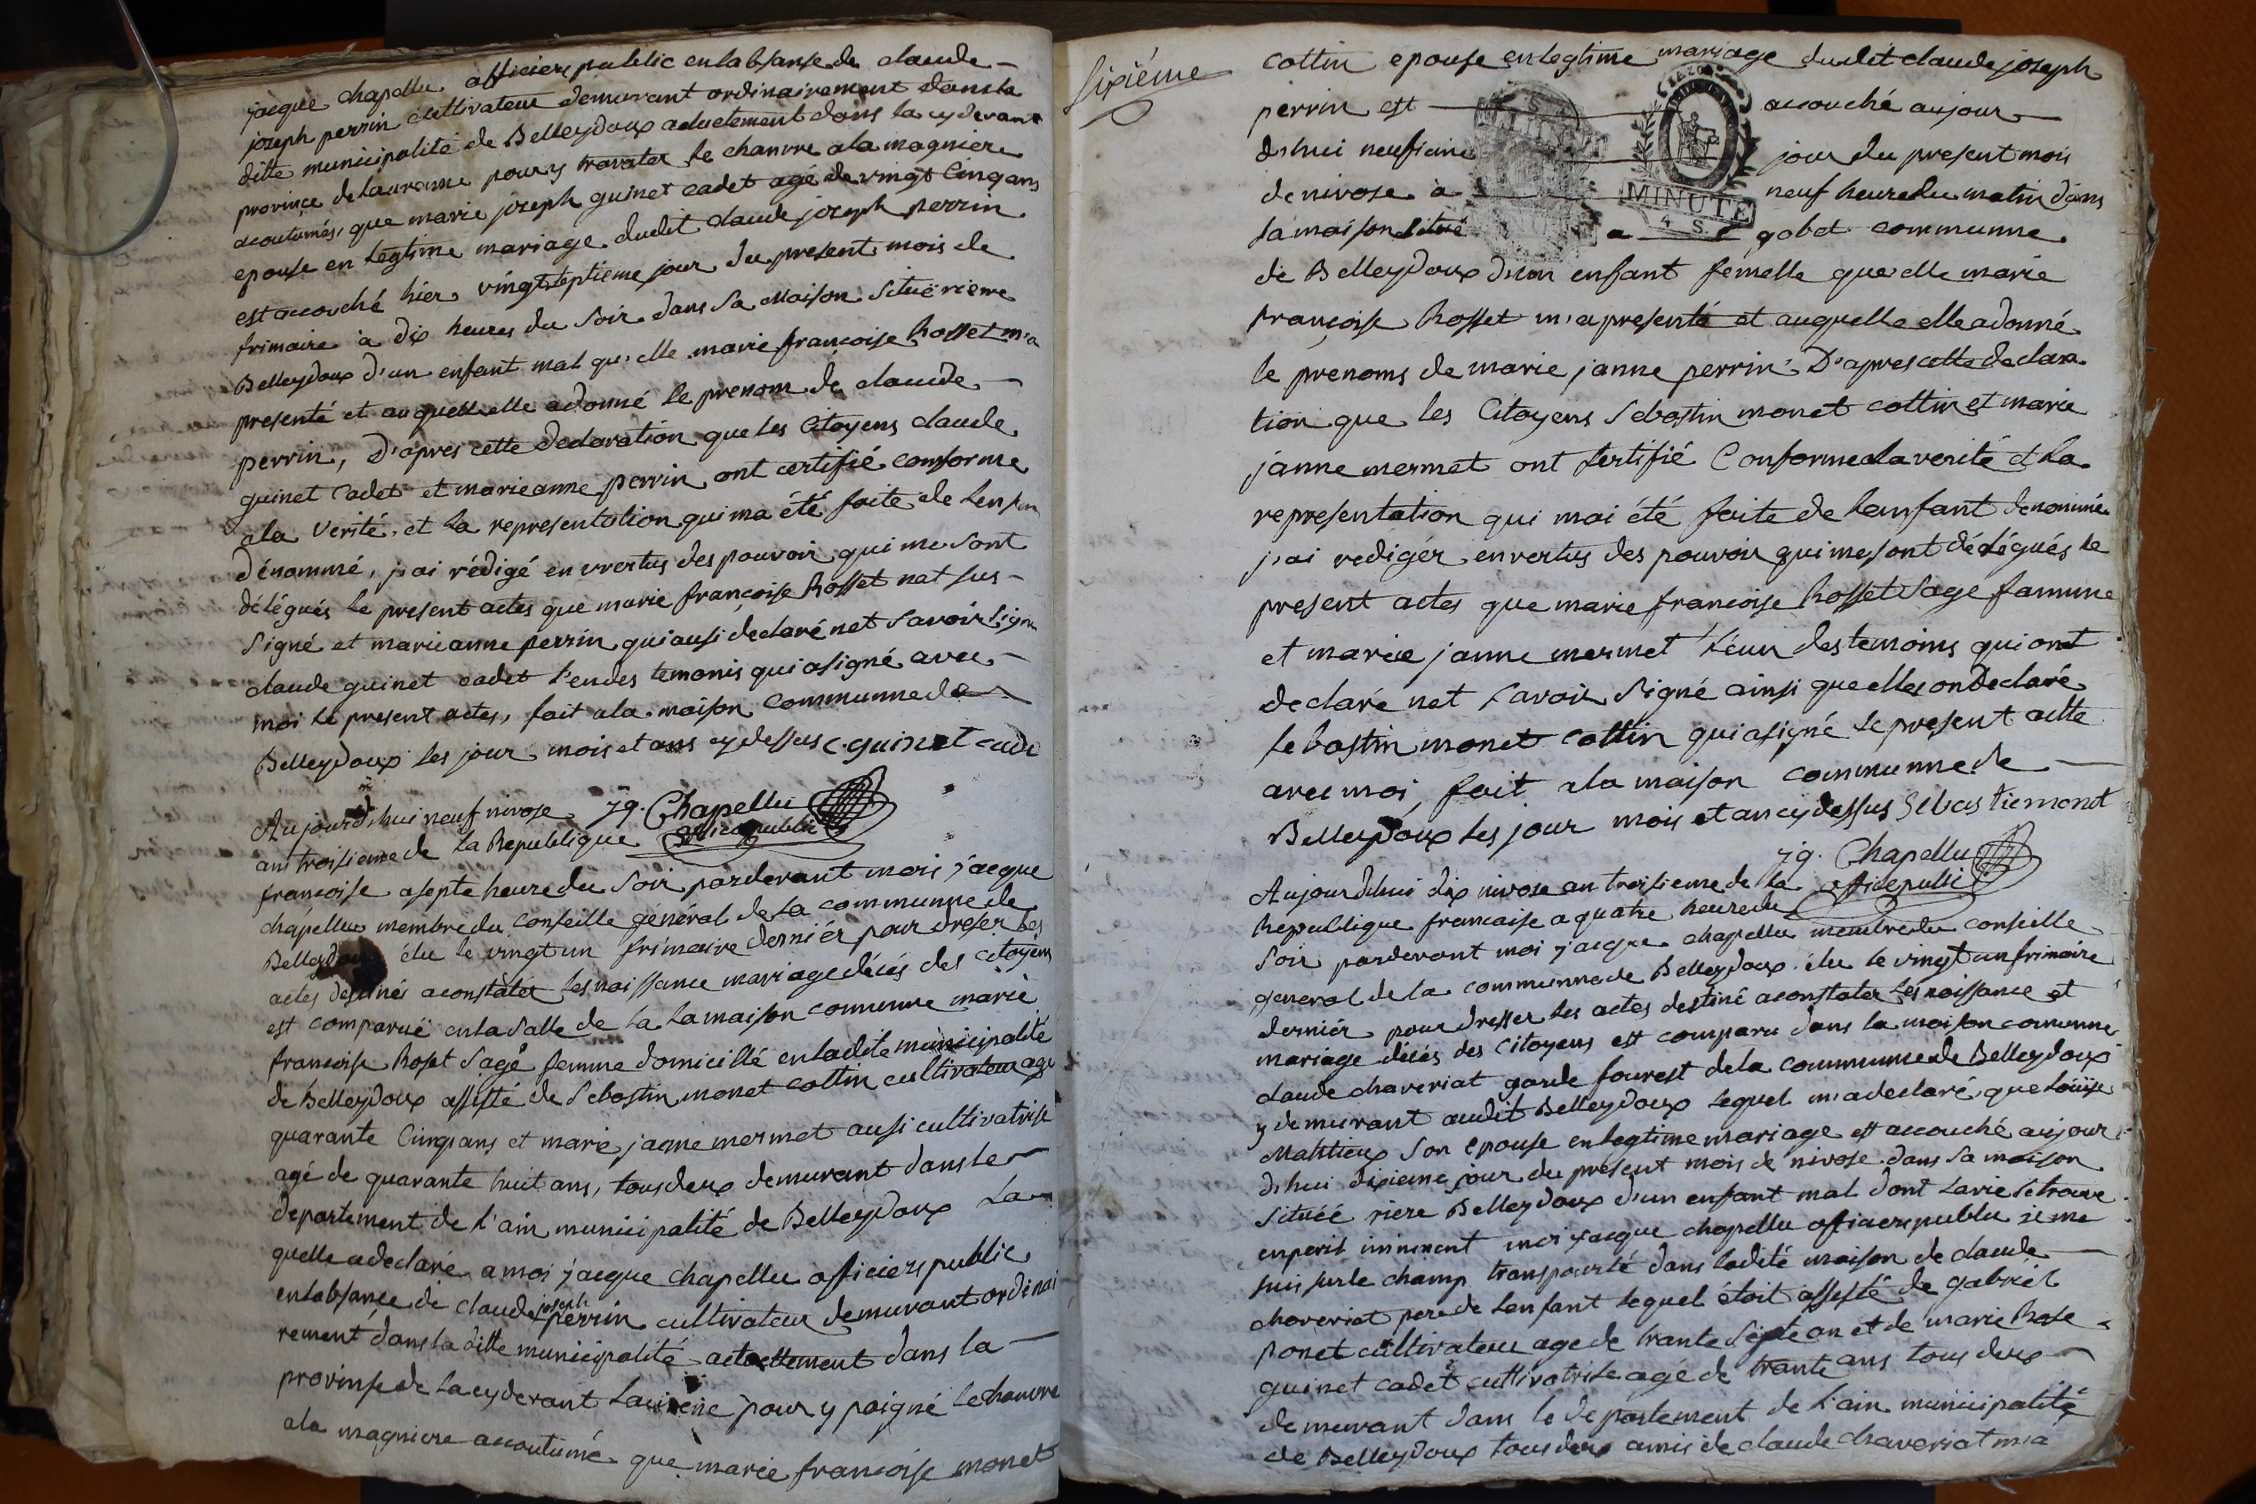 jacque chapellu officier public en labsanse de claude
joseph perrin cultivateur demurant ordinairement dans la
ditte municipalité de Belleydoux actuelement dans la cy devant
province de lauranne pour y travater le chanvre a la magniere
acoutumés, que marie joseph guinet cadet agé de vingt Cinq ans
epouse en legtime mariage dudit claude joseph perrin
est accouché hier vingt septieme jour du present mois de
frimaire à dix heures du soir dans sa Maison situë riere
Belleydoux d'un enfant mal qu'elle marie françoise Rosset m'a
presenté et auquelle elle a donné le prenom de claude
perrin, D'apres cette declaration que les Citoyens claude
guinet Cadet et marie anne perrin ont certifié conforme
a la verité, et la representation qui ma été faite de lenfan
dénommé, j'ai rédigé en vvertus des pouvoir qui me sont
délégués le present actes que marie françoise Rosset nat sus
signé et marie anne perrin qui ausi declaré net savoir signe
claude guinet cadet l'en des temonis qui a signé avec
moi le present actes, fait a la maison Communne de
Belleydoux les jour mois et ans cy dessus C. guinet cade
Aujourd'hui neuf nivose jq. Chapellu
ans troisieme de la Republique officier public
francoise a septe heure du soir pardevant moi jacque
chapellu membre du Conseille général de la communne de
Belleydoux élu le vingt un frimaire derniér pour dreser les
actes destinés a constater les naissance mariage décés des citoyens
est comparuë en la salle de la la maison comunne marie
francoise Roset sage femme domicillé en ladite municipalité
de Belleydoux assisté de Sebastin monet cottin cultivateur agé
quarante Cinq ans et marie janne mermet ausi cultivatrise
agé de quarante huit ans, tous deux demurant dans le
departement de l'ain municipalité de Belleydoux La
quelle a declaré a moi jacque chapellu officier public
en labsance de claude joseph perrin cultivateur demurant ordinai
rement dans la ditte municipalité actuellement dans la
provinse de la cy devant pour y paigné le chanvre
a la magniere accoutumé que marie francoise monet
Sixiéme
cottin epouse en legtime mariage dudit claude joseph
perrin est accouché aujour
d'hui neufieme jour du present mois
de nivose à neuf heure du matin dans
sa maison situé a gobet communne
MINUTE
4 S
de Belleydoux d'un enfant femelle que elle marie
françoise Rosset m'a presenté et auquelle elle a donné
le prenoms de marie janne perrin. D'apres cette declara
tion que les Citoyens Sebastin monet cottin et marie
janne mermet ont sertifié Conforme a la verité et La
representation qui moi été faite de lanfant denomimé
j'ai redigér en vertus des pouvoir qui me sont délégués le
present actes que marie francoise Rosset sage famme
et mariee janne mermet l'eun des temoins qui ont
declaré net savoir signé ainsi que elles on declaré
sebastin monet cottin qui a signé le present acte
avec moi, fait a la maison communne de
Belleydoux les jour mois et an cy dessus Sebastiemonet
jq. Chapellu
Aujourdhui dix nivose an troisieme de la officie publi
Republique francaise a quatre heure du
soir pardevant moi jacque chapellu membre du conseille
general de la communne de Belleydoux élu le vingt un frimaire
derniér pour dresser les actes destiné a constater les naissance et
mariage décés des Citoyens est comparu dans la maison comunne
claude chaveriat garde fourest de la communne de Belleydoux
y demurant audit Belleydoux lequel m'a declaré que Loüise
Mahtieux son epouse en legtime mariage est accouché aujour
d'hui dixieme jour du présent mois de nivose dans sa maison
situéé riere Belleydoux d'un enfant mal dont la vie se trouve
en peril iminent moi jacque chapellu officier publu je me
suis sur le champ transpourté dans ladité maison de claude
chaveriat pere de lenfant lequel étoit assisté de gabriel
ponet cultivateur age de trante septe an et de marie Rose
guinet cadet cultivatrise agé de trante ans tous deux
demurant dans le departement de l'ain municipalité
de Belleydoux tous deux amis de claude chaveriat m'a